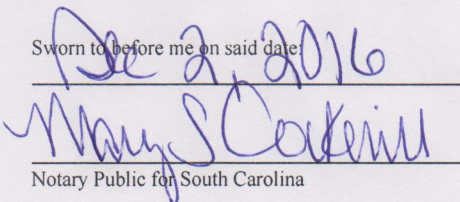 Sworn to before me on said date:
Dec 2, 2016
Mary S Cockerill
Notary Public for South Carolina